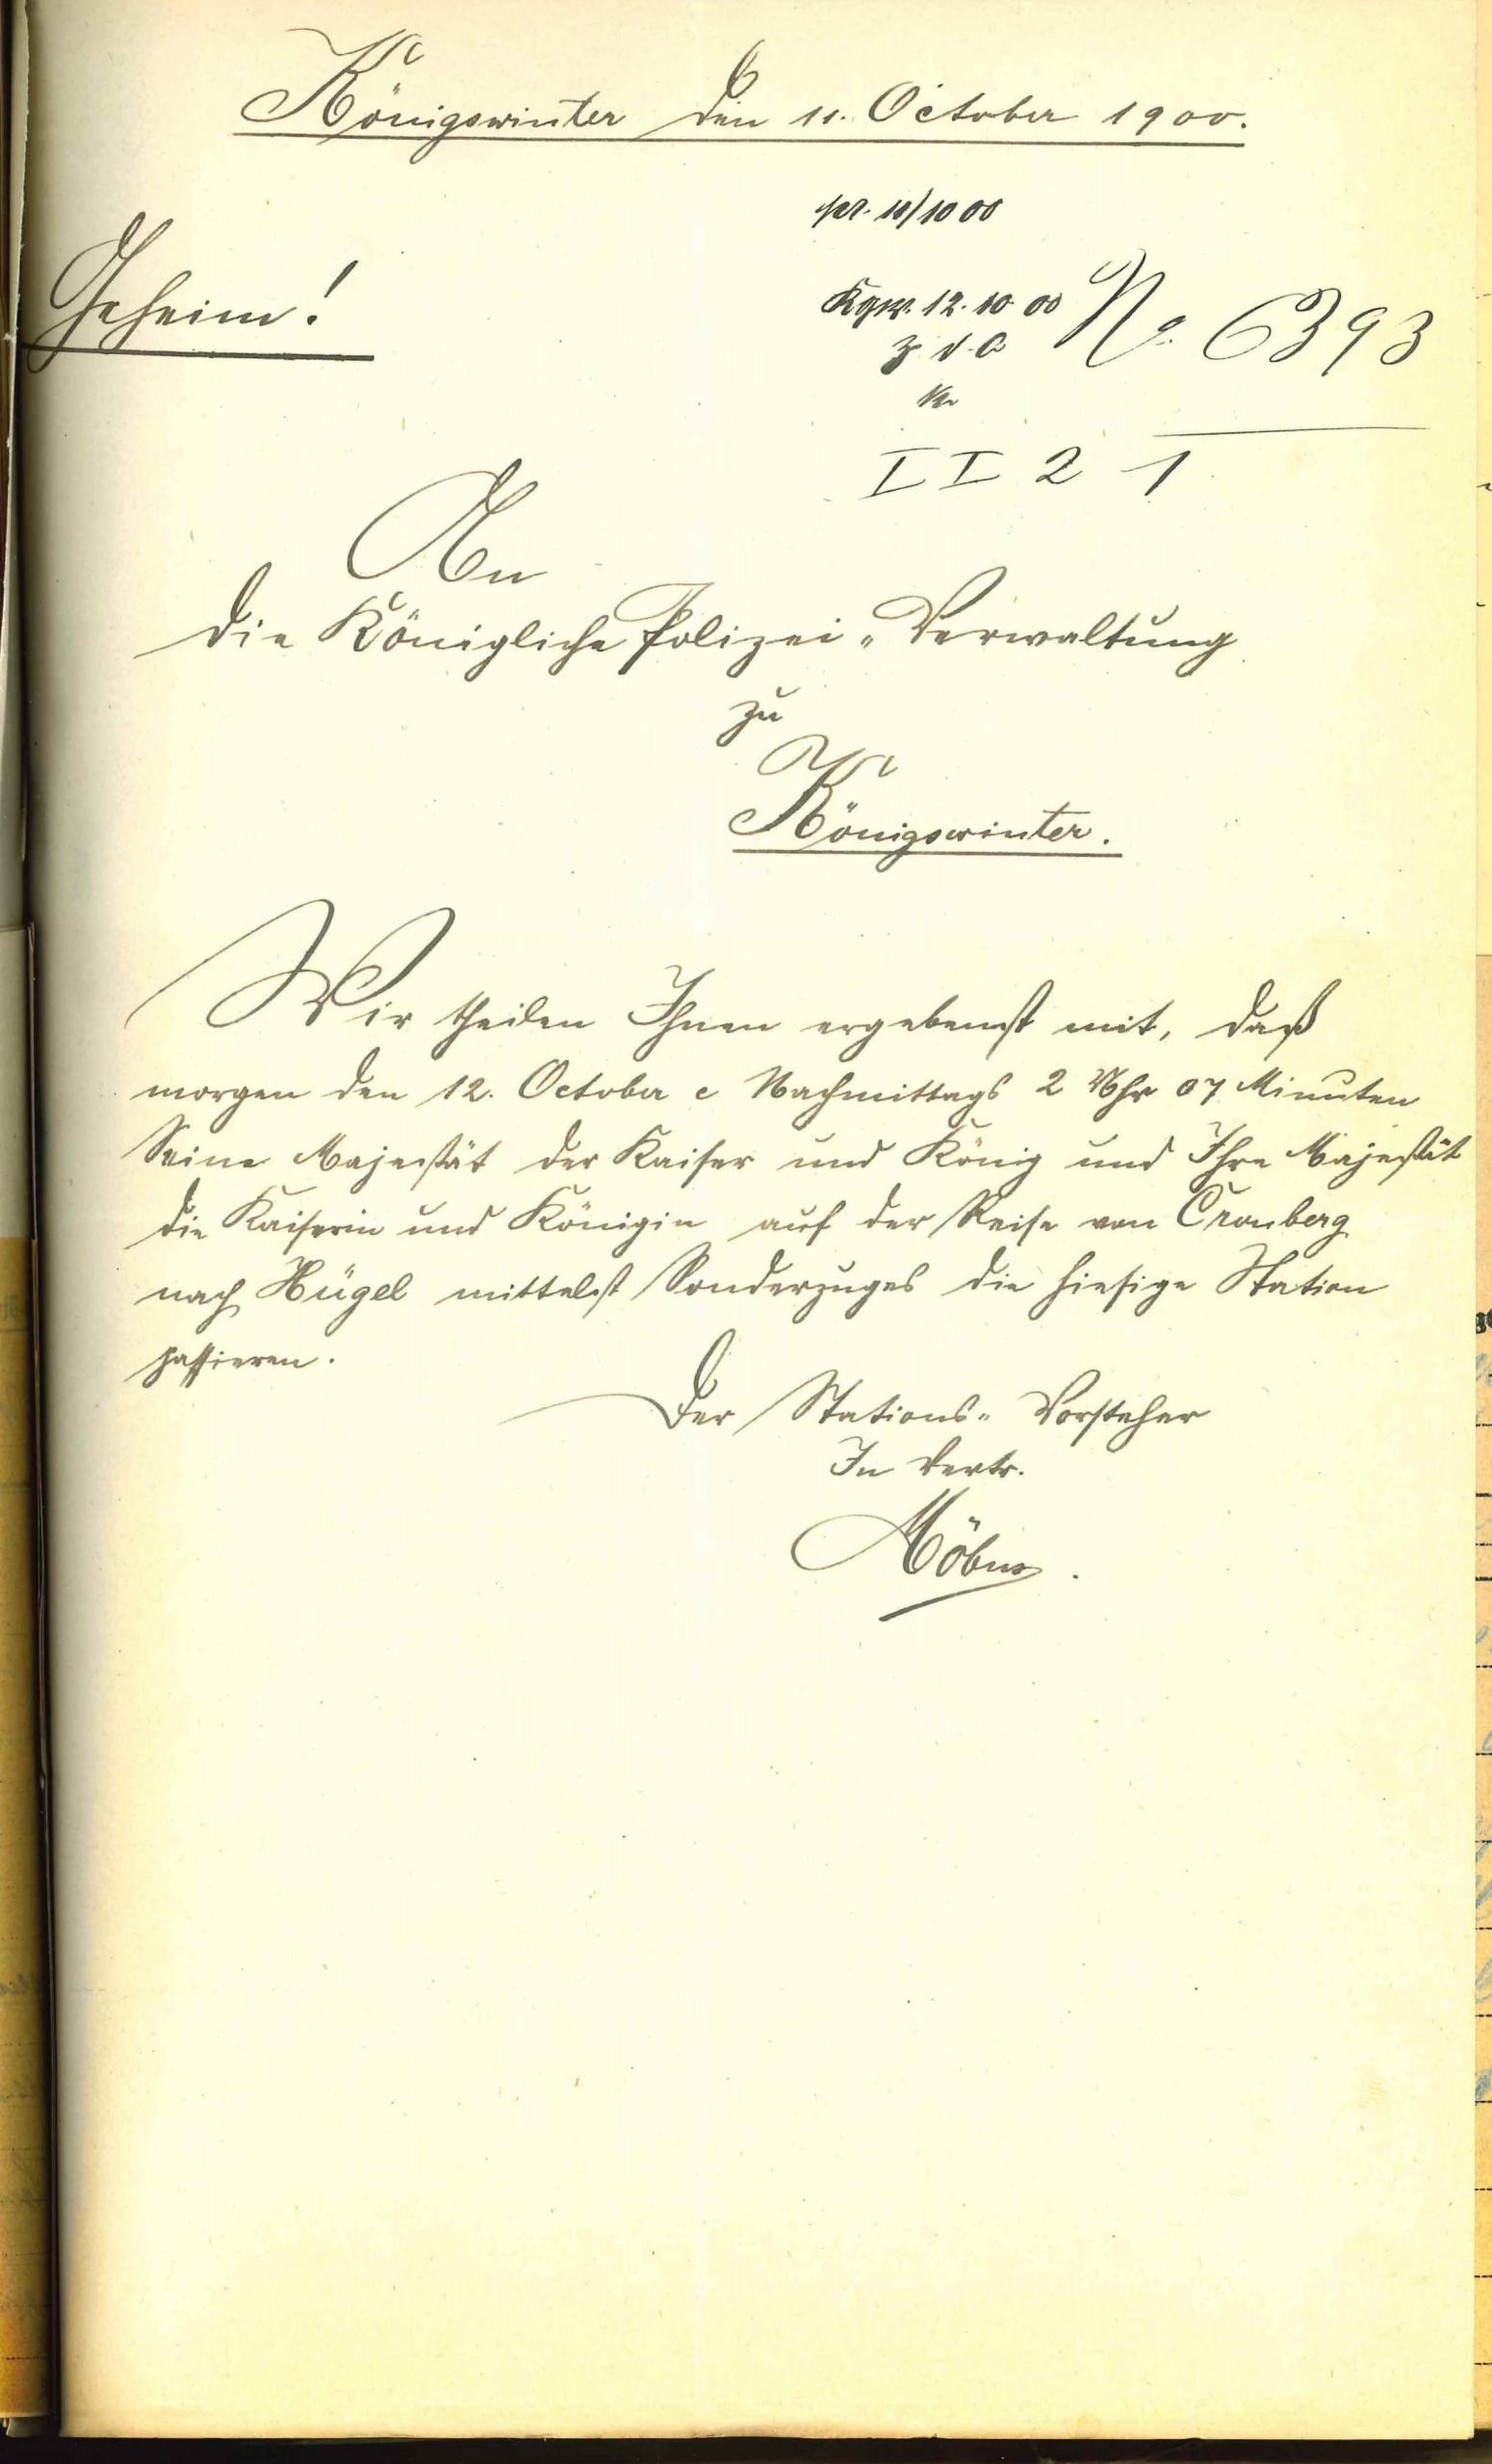 Königswinter den 11. October 1900.
pr. 11/10 00
Geheim!
Kgsw. 12. 10. 00 No. 6393
z. d. A
II 2 1
An
die Königliche Polizei-Verwaltung
zu
Königswinter.
Wir theilen Ihnen ergebenst mit, daß
morgen den 12. October c Nachmittags 2 Uhr 07 Minuten
Seine Majestät der Kaiser und König und Ihre Majestät
die Kaiserin und Königin auf der Reise von Cronberg
nach Hügel mittelst Sonderzuges die hiesige Station
passieren.
Der Stations-Vorsteher
In Vertr.
Möbus.